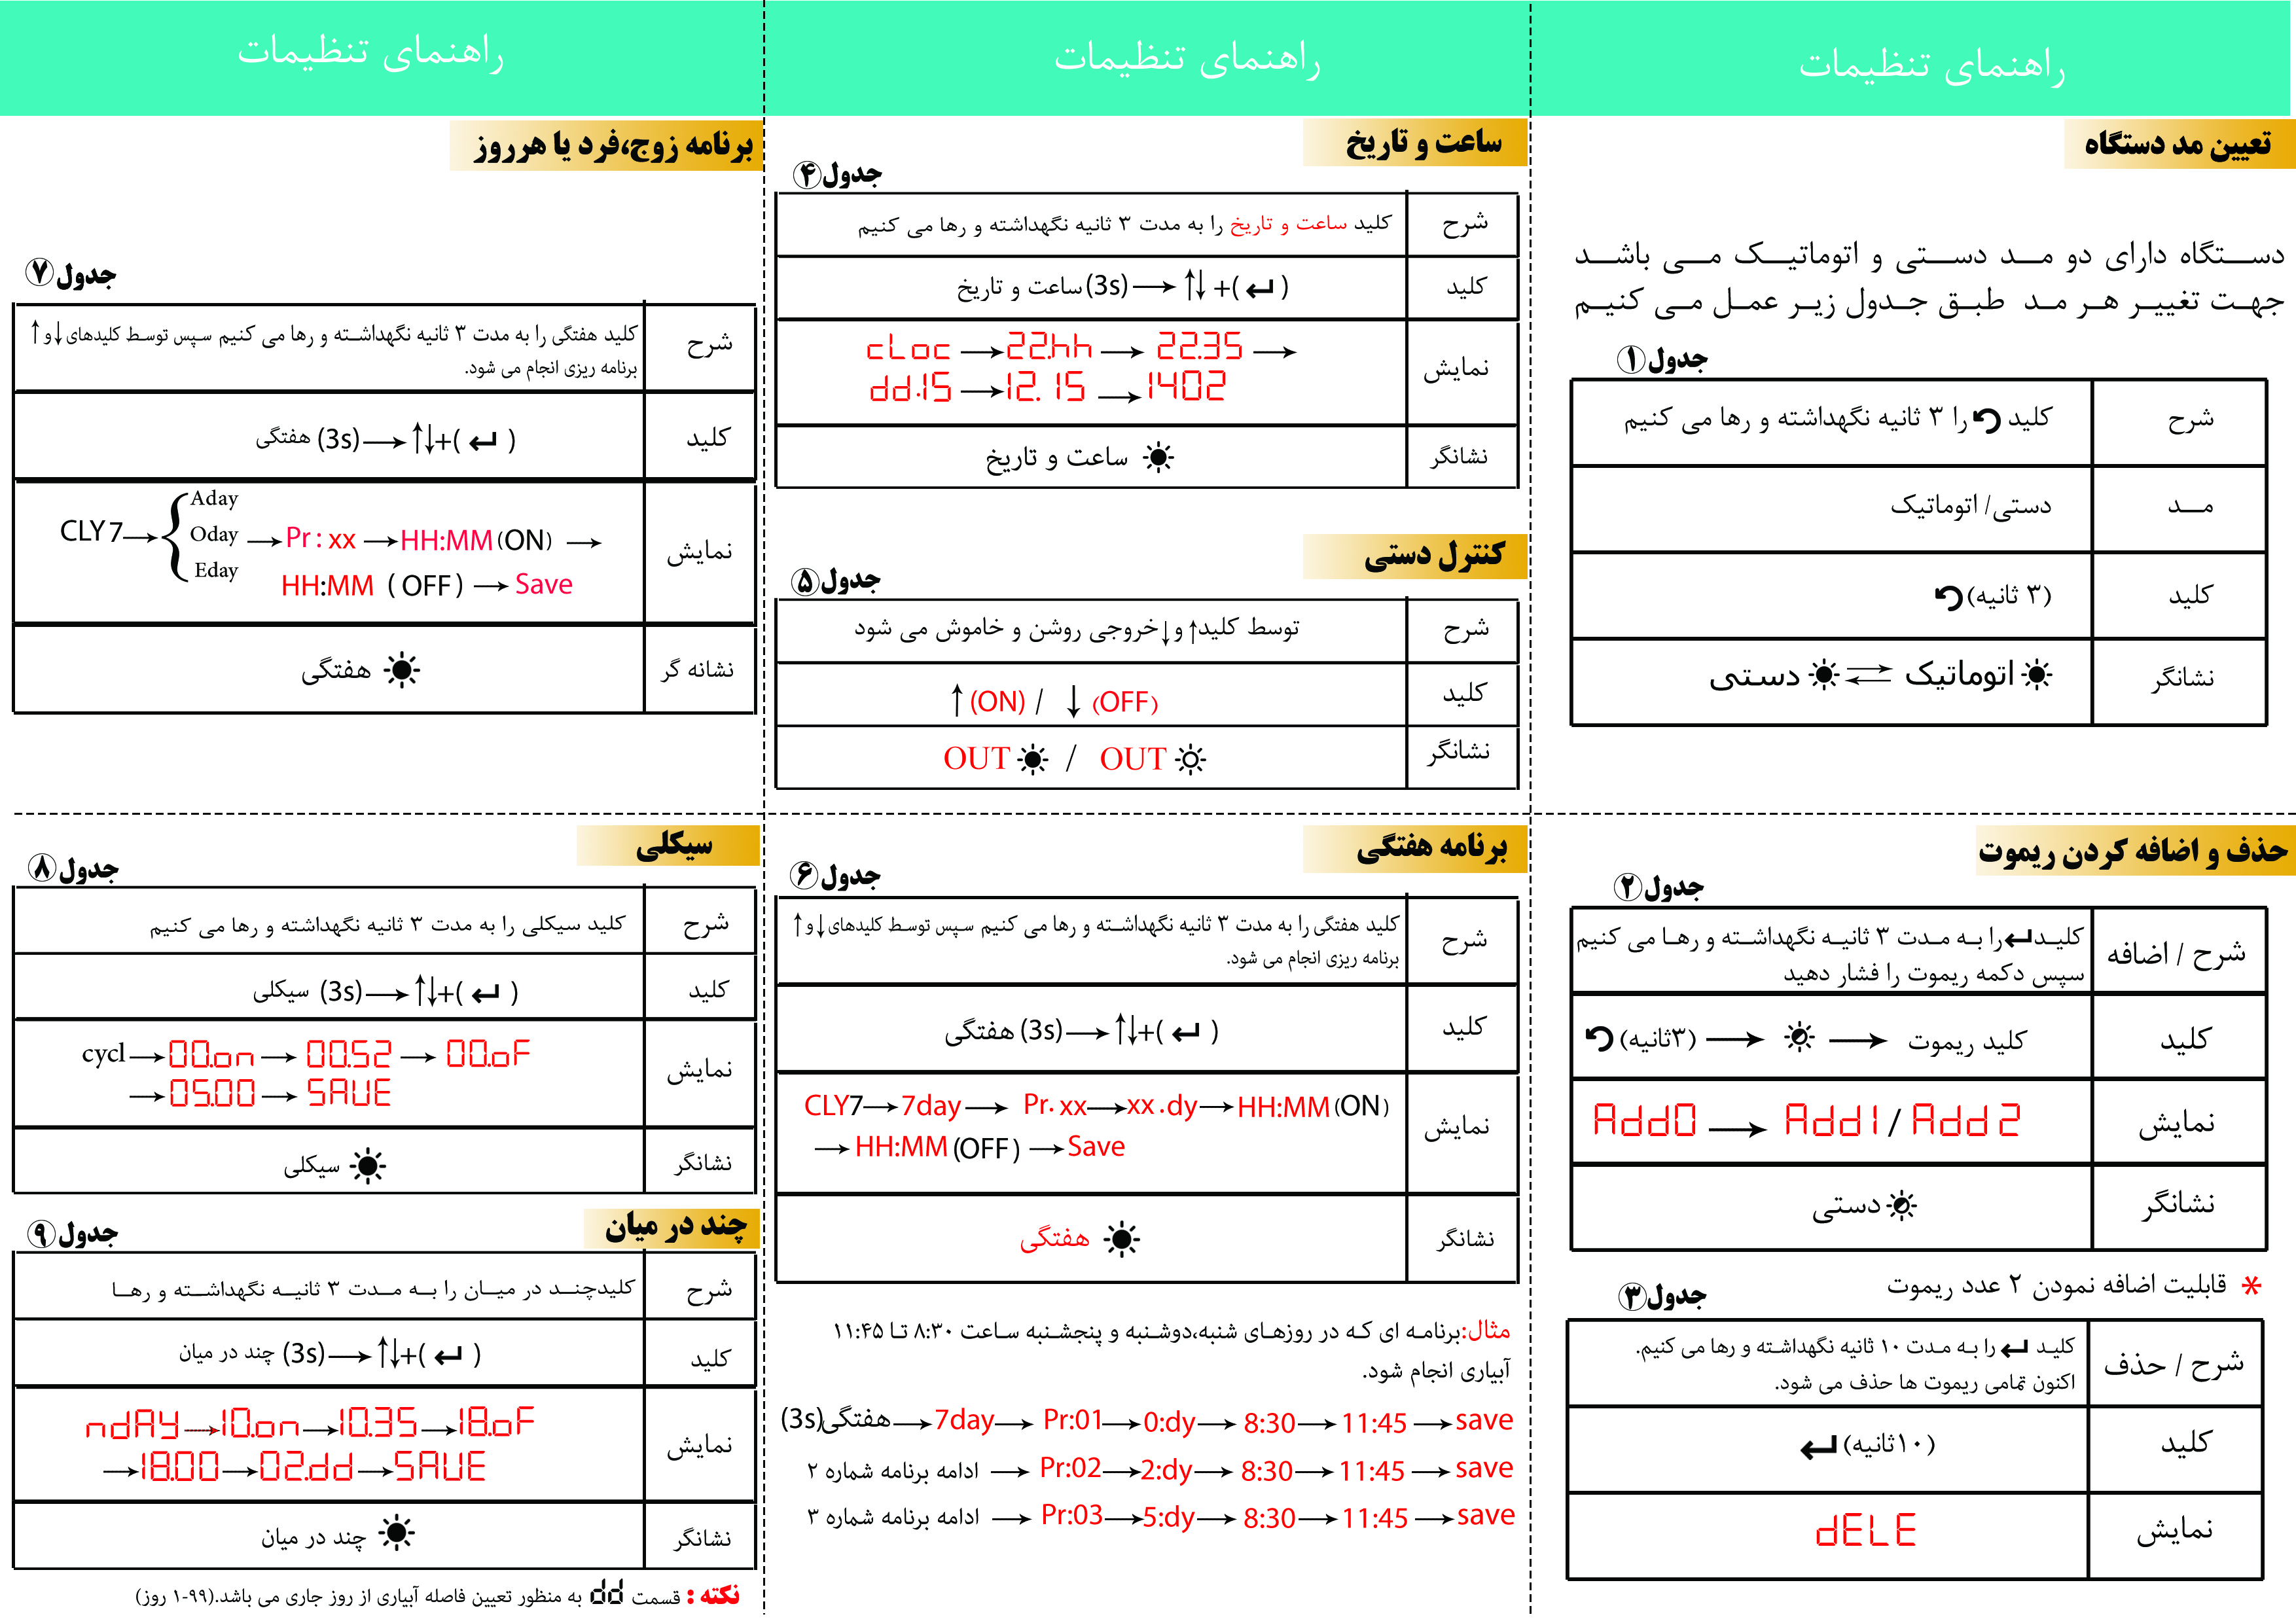 راهنمای تنظیمات
تعیین مد دستگاه
دستگاه دارای دو مد دستی و اتوماتیک می باشد
جهت تغییر هر مد طبق جدول زیر عمل می کنیم
جدول ۱
شرح
کلید ⟲ را ۳ ثانیه نگهداشته و رها می کنیم
مد
دستی/ اتوماتیک
کلید
(۳ ثانیه) ⟲
نشانگر
☀ اتوماتیک ⇄ ☀ دستی
حذف و اضافه کردن ریموت
جدول ۲
شرح / اضافه
کلید ↵ را به مدت ۳ ثانیه نگهداشته و رها می کنیم
سپس دکمه ریموت را فشار دهید
کلید
⟲ (۳ثانیه) → ☀ → کلید ریموت
نمایش
Add0 → Add1 / Add2
نشانگر
☀ دستی
* قابلیت اضافه نمودن ۲ عدد ریموت
جدول ۳
شرح / حذف
کلید ↵ را به مدت ۱۰ ثانیه نگهداشته و رها می کنیم.
اکنون تمامی ریموت ها حذف می شود.
کلید
(۱۰ثانیه) ↵
نمایش
dELE
راهنمای تنظیمات
ساعت و تاریخ
جدول ۴
شرح
کلید ساعت و تاریخ را به مدت ۳ ثانیه نگهداشته و رها می کنیم
کلید
ساعت و تاریخ (3s) → ↑↓ +( ↵ )
نمایش
cLoc → 22.hh → 22.35 →
dd.15 → 12.15 → 1402
نشانگر
☀ ساعت و تاریخ
کنترل دستی
جدول ۵
شرح
توسط کلید ↑ و ↓ خروجی روشن و خاموش می شود
کلید
↑ (ON) / ↓ (OFF)
نشانگر
OUT ☀ / OUT ☼
برنامه هفتگی
جدول ۶
شرح
کلید هفتگی را به مدت ۳ ثانیه نگهداشته و رها می کنیم سپس توسط کلیدهای ↓ و ↑
برنامه ریزی انجام می شود.
کلید
هفتگی (3s) → ↑↓+( ↵ )
نمایش
CLY7 → 7day → Pr. xx → xx .dy → HH:MM (ON)
→ HH:MM (OFF) → Save
نشانگر
☀ هفتگی
مثال:برنامه ای که در روزهای شنبه،دوشنبه و پنجشنبه ساعت ۸:۳۰ تا ۱۱:۴۵
آبیاری انجام شود.
هفتگی(3s) → 7day → Pr:01 → 0:dy → 8:30 → 11:45 → save
ادامه برنامه شماره ۲ → Pr:02 → 2:dy → 8:30 → 11:45 → save
ادامه برنامه شماره ۳ → Pr:03 → 5:dy → 8:30 → 11:45 → save
راهنمای تنظیمات
برنامه زوج،فرد یا هرروز
جدول ۷
شرح
کلید هفتگی را به مدت ۳ ثانیه نگهداشته و رها می کنیم سپس توسط کلیدهای ↓ و ↑
برنامه ریزی انجام می شود.
کلید
هفتگی (3s) → ↑↓+( ↵ )
نمایش
Aday
CLY7 → { Oday → Pr : xx → HH:MM (ON) →
Eday
HH:MM ( OFF ) → Save
نشانه گر
☀ هفتگی
سیکلی
جدول ۸
شرح
کلید سیکلی را به مدت ۳ ثانیه نگهداشته و رها می کنیم
کلید
سیکلی (3s) → ↑↓+( ↵ )
نمایش
cycl → 00.on → 00.52 → 00.oF
→ 05.00 → SAUE
نشانگر
☀ سیکلی
چند در میان
جدول ۹
شرح
کلیدچند در میان را به مدت ۳ ثانیه نگهداشته و رها
کلید
چند در میان (3s) → ↑↓+( ↵ )
نمایش
ndAY → 10.on → 10.35 → 18.oF
→ 18.00 → 02.dd → SAUE
نشانگر
☀ چند در میان
نکته : قسمت dd به منظور تعیین فاصله آبیاری از روز جاری می باشد.(۹۹-۱ روز)